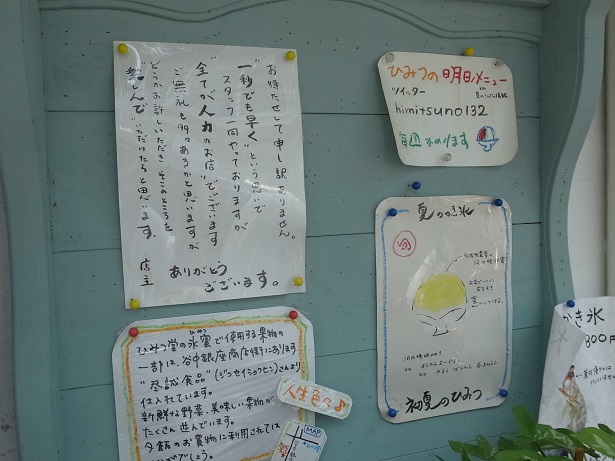 お待たせして申し訳ありません。
"一秒でも早く"という思いで
スタッフ一同やっておりますが
"全てが人力のお店"でございます
ご無礼も多々あるかと思いますが
どうかお許しいただき そこのところを
楽しんで"いただけたらと思います。
店主
ありがとう
ございます。
ひみつの明日メニュー
ツイッター
himitsuno132
毎週かわります
夏のかき氷
旬
初夏のひみつ
ひみつ
ひみつ堂の氷蜜で使用する果物の
一部は、谷中銀座商店街にあります
"尽誠食品"(ジンセイショクヒン)さんより
仕入れています。
新鮮な野菜、美味しい果物が
たくさん並んでいます。
夕飯のお買物に利用されては
人生色々♪
MAP
かき氷
800円